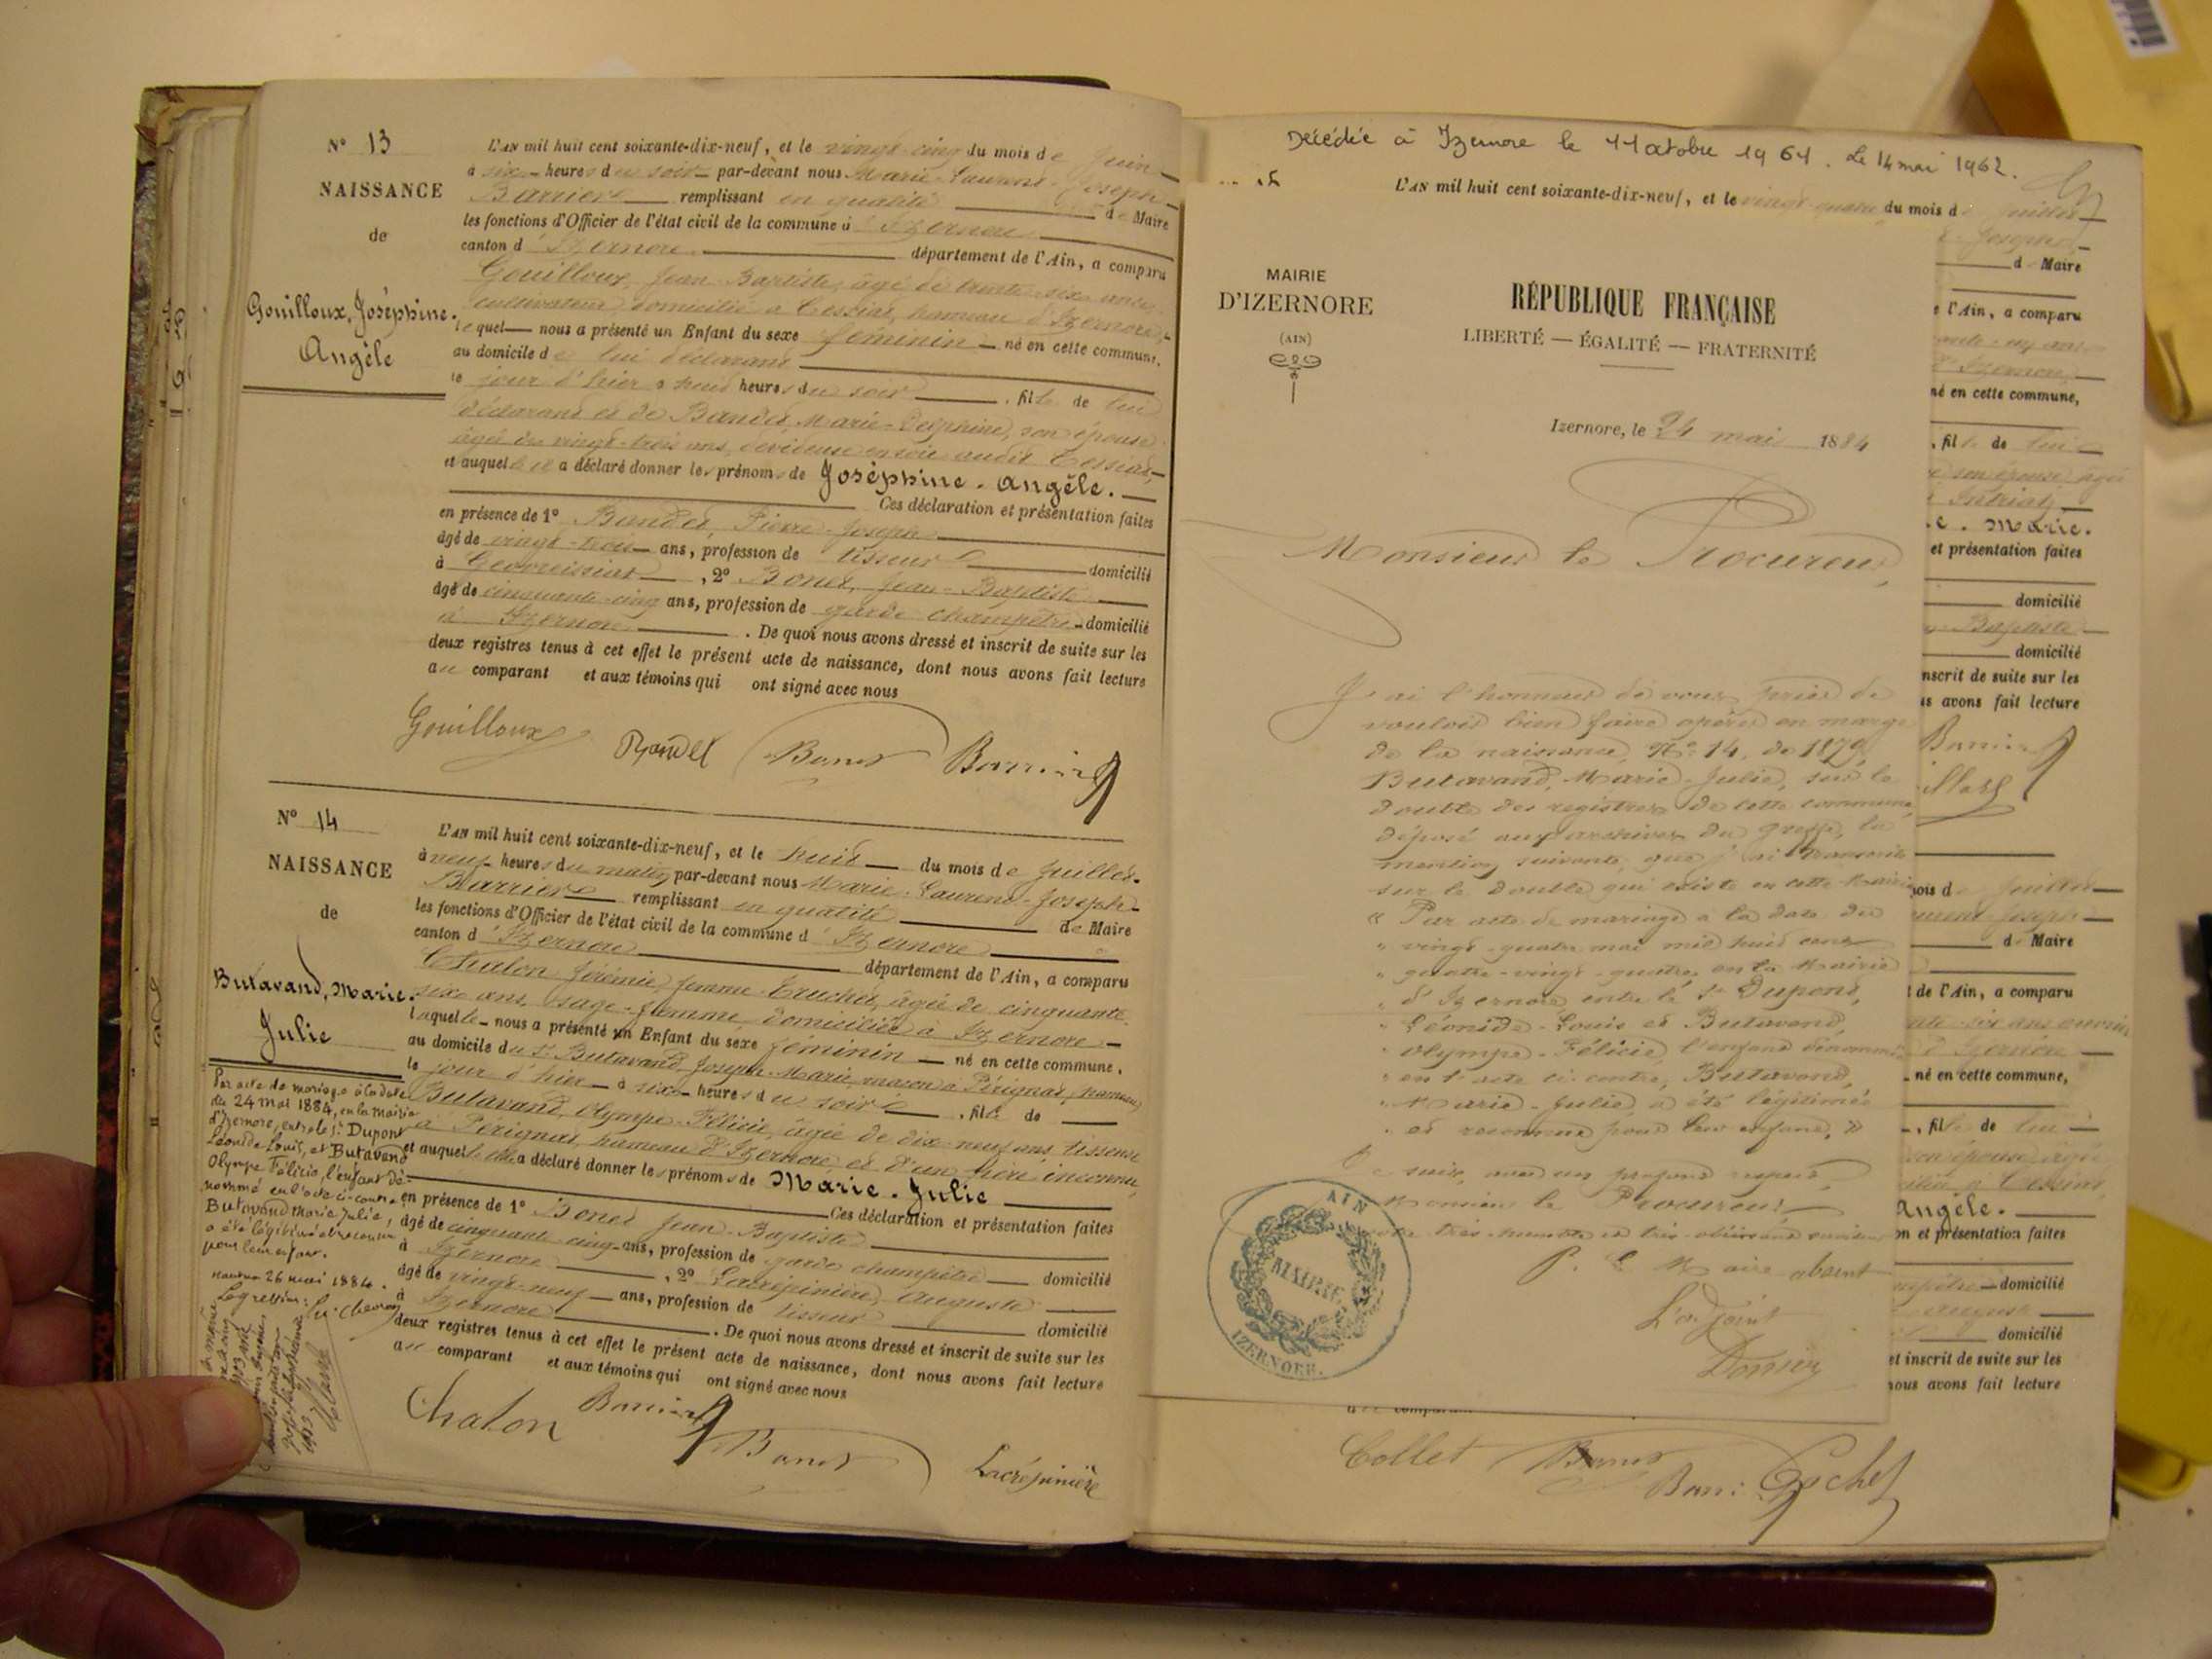 N° 13
NAISSANCE
de
Gouilloux, Joséphine-
Angèle
L'AN mil huit cent soixante-dix-neuf, et le vingt-cinq du mois de Juin
à six heures du soir par-devant nous Marie-Laurent-Joseph
Barrier remplissant en qualité de Maire
les fonctions d'Officier de l'état civil de la commune d'Izernore
canton d'Izernore département de l'Ain, a comparu
Gouilloux, Jean-Baptiste, âgé de trente-six ans,
cultivateur, domicilié à Cessiat, hameau d'Izernore,
lequel nous a présenté un Enfant du sexe féminin né en cette commune,
au domicile de lui déclarant
le jour d'hier à huit heures du soir, fille de lui
déclarant et de Bandet, Marie-Delphine, son épouse
âgée de vingt-trois ans, dévideuse en soie audit Cessiat,
et auquel il a déclaré donner les prénoms de Joséphine-Angèle.
Ces déclaration et présentation faites
en présence de 1° Bandet, Pierre-Joseph
âgé de vingt-trois ans, profession de tisseur domicilié
à Geovreissiat, 2° Bonet, Jean-Baptiste
âgé de cinquante-cinq ans, profession de garde champêtre domicilié
à Izernore. De quoi nous avons dressé et inscrit de suite sur les
deux registres tenus à cet effet le présent acte de naissance, dont nous avons fait lecture
au comparant et aux témoins qui ont signé avec nous
Gouilloux Bandet Bonet Barrier
N° 14
NAISSANCE
de
Butavand, Marie-
Julie
L'AN mil huit cent soixante-dix-neuf, et le huit du mois de Juillet
à neuf heures du matin par-devant nous Marie-Laurent-Joseph
Barrier remplissant en qualité de Maire
les fonctions d'Officier de l'état civil de la commune d'Izernore
canton d'Izernore département de l'Ain, a comparu
Chalon Jérémie, femme Truchet, âgée de cinquante-
six ans, sage-femme, domiciliée à Izernore
laquelle nous a présenté un Enfant du sexe féminin né en cette commune,
au domicile du Sr Butavand, Joseph-Marie, maçon à Pérignat, hameau
le jour d'hier à six heures du soir, fille de
Butavand, Olympe-Félicie, âgée de dix-neuf ans, tisseuse
à Pérignat, hameau d'Izernore, et d'un père inconnu,
et auquel elle a déclaré donner les prénoms de Marie-Julie
Ces déclaration et présentation faites
en présence de 1° Bonet Jean-Baptiste
âgé de cinquante-cinq ans, profession de garde champêtre domicilié
à Izernore, 2° Lacrépinière, Auguste
âgé de vingt-neuf ans, profession de tisseur domicilié
à Izernore. De quoi nous avons dressé et inscrit de suite sur les
deux registres tenus à cet effet le présent acte de naissance, dont nous avons fait lecture
au comparant et aux témoins qui ont signé avec nous
Chalon Barrier Bonet Lacrépinière
Par acte de mariage à la date
du 24 mai 1884, en la Mairie
d'Izernore, entre le Sr Dupont
Léonide Louis, et Butavand
Olympe Félicie, l'enfant dé-
nommé en l'acte ci-contre,
Butavand Marie Julie,
a été légitimé et reconnu
pour leur enfant.
Nantua 26 mai 1884.
Le greffier:
Décédée à Izernore le 11 octobre 1961. Le 14 mai 1962.
L'AN mil huit cent soixante-dix-neuf, et le vingt-quatre du mois de Juillet
MAIRIE
D'IZERNORE
(AIN)
RÉPUBLIQUE FRANÇAISE
LIBERTÉ — ÉGALITÉ — FRATERNITÉ
Izernore, le 24 mai 1884
Monsieur le Procureur,
J'ai l'honneur de vous prier de
vouloir bien faire opérer en marge
de la naissance, N° 14, de 1879,
Butavand, Marie-Julie, sur le
double des registres de cette commune,
déposé aux archives du greffe, la
mention suivante, que j'ai transcrite
sur le double qui existe en cette Mairie
« Par acte de mariage à la date du
" vingt-quatre mai mil huit cent
" quatre-vingt-quatre, en la Mairie
" d'Izernore entre le Sr Dupont,
" Léonide-Louis et Butavand,
" Olympe-Félicie, l'enfant dénommé
" en l'acte ci-contre, Butavand,
" Marie-Julie, a été légitimée
" et reconnue pour leur enfant. »
Je suis, avec un profond respect,
Monsieur le Procureur,
votre très-humble et très-obéissant serviteur
P. le Maire absent
L'adjoint
AIN
MAIRIE
IZERNORE.
d Maire
l'Ain, a comparu
né en cette commune,
, fille de lui
son épouse âgée
Marie.
et présentation faites
domicilié
Baptiste
domicilié
inscrit de suite sur les
avons fait lecture
Barrier
mois de Juillet
Laurent Joseph
de Maire
de l'Ain, a comparu
d'Izernore
né en cette commune,
, fille de lui
son épouse âgée
à Cessiat,
Angèle.
et présentation faites
domicilié
Auguste
domicilié
et inscrit de suite sur les
nous avons fait lecture
Collet Bonet
Barrier Gochet